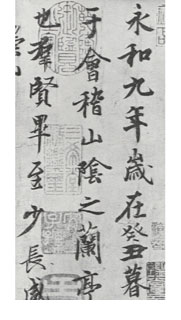 永和九年歲在癸丑暮
于會稽山陰之蘭亭
也羣賢畢至少長咸